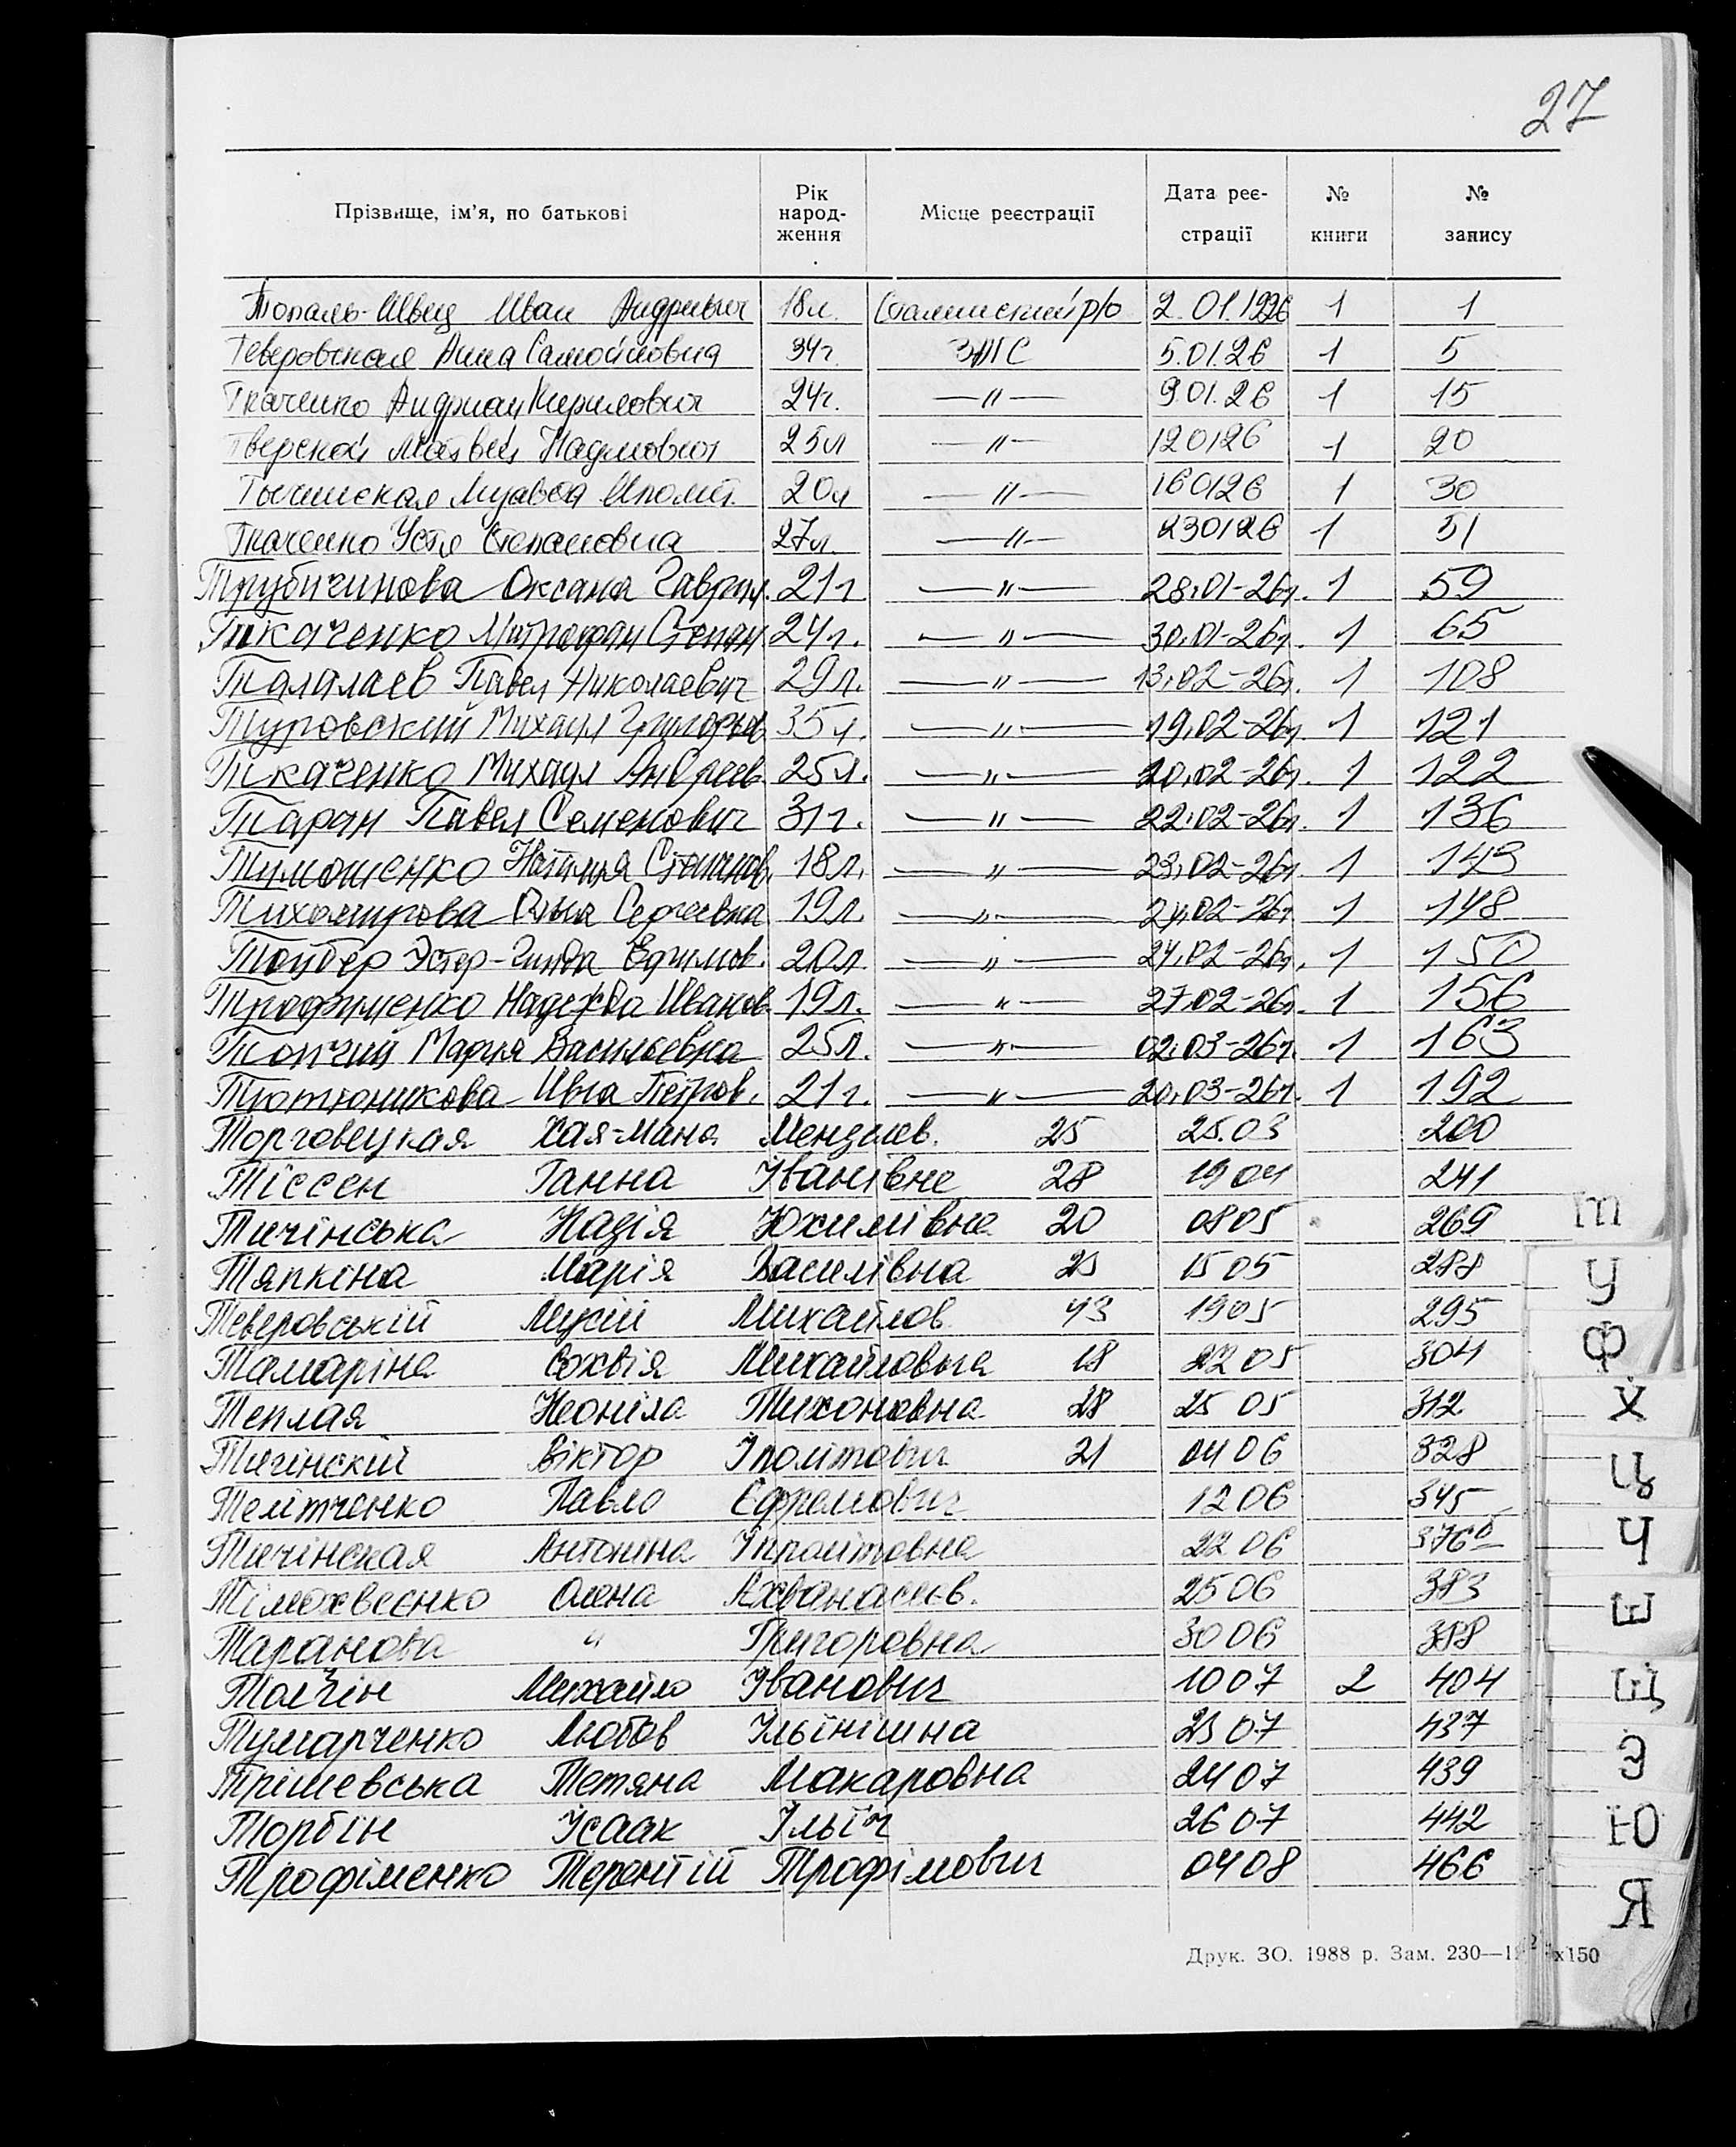 27
Прізвище, ім'я, по батькові Рік народ-ження Місце реєстрації Дата реє-страції № книги № запису
Топаль-Швец Иван Андриевич 18л. Сталинский р/о 2.01.1926 1 1
Теверовская Анна Самойловна 34г. ЗАГС 5.01.26 1 5
Ткаченко Андриан Кирилович 24г. —"— 9.01.26 1 15
Тверской Матвей Наумович 25л —"— 120126 1 20
Тычинская Иполит. 20л —"— 160126 1 30
Ткаченко Устя Степановна 27л. —"— 230126 1 51
Трубичинова Оксана Гаврил. 21г. —"— 28.01-26г. 1 59
Ткаченко Митрофан Степан. 24г. —"— 30.01-26г. 1 65
Талалаев Павел Николаевич 29л. —"— 13.02-26г. 1 108
Туровский Михаил Григорьев 35л. —"— 19.02-26г. 1 121
Ткаченко Михаил Андреев. 25л. —"— 20.02-26г. 1 122
Таран Павел Семенович 31г. —"— 22.02-26г. 1 136
Тимошенко Наталия Степанов. 18л. —"— 23.02-26г. 1 143
Тихомирова Сергеевна 19л. —"— 24.02-26г. 1 148
Тойбер Эстер-Гинда Ефимов. 20л. —"— 24.02-26г. 1 150
Трофименко Надежда Иванов. 19л. —"— 27.02-26г. 1 156
Топчий Мария Васильевна 25л. —"— 02.03-26г. 1 163
Тютюникова Ивга Петров. 21г. —"— 20.03-26г. 1 192
Торговецкая Хая-Мана Менделев. 25 25.03 200
Тіссен Ганна Іванівне 28 1904 241
Тичінська Надія Юхимівне 20 0805 269
Тяпкіна Марія Василівна 23 1505 288
Теверовській Мусій Михайлов 43 1905 295
Тамаріна Софвія Михайловна 18 2205 304
Теплая Неоніла Тихоновна 28 25 05 312
Тичінскій Віктор Іполітович 21 0406 328
Телітченко Павло Єфремович 1206 345
Тичінская Антоніна Іпполітовна 2206 376а
Тімохвеєнко Олена Ахванасьєв. 2506 383
Таранова " Григоровна 3006 388
Толчін Михайло Іванович 1007 2 404
Тумарченко Любов Ільінішна 2307 437
Трішевська Тетяна Макаровна 2407 439
Торбін Ісаак Ільїч 2607 442
Трофіменко Терентій Трофімович 0408 466
Т
У
Ф
Х
Ц
Ч
Ш
Щ
Э
Ю
Я
Друк. ЗО. 1988 р. Зам. 230—1 х150